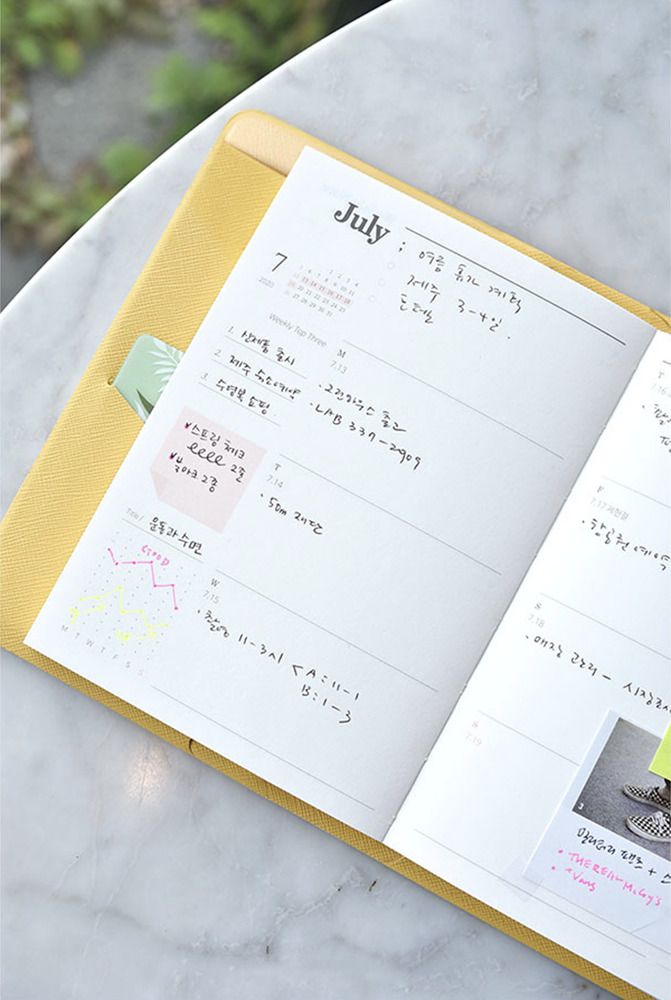 July
; 여름 휴가 계획
제주 3-4일.
호텔
7
2020
Weekly Top Three
1. 신제품 출시
2. 제주 숙소예약
3. 수영복 쇼핑
스프링 체크
2종
북마크 2종
Title/ 운동과 수면
GOOD
M T W T F S S
M
7.13
· LAB 337-2909
T
7.14
· 50m 재단
W
7.15
· 촬영 11-3시 < A : 11-1
B : 1-3
T
7.16
F
7.17 제헌절
· 항공권 예약
S
7.18
S
7.19
3
+
• THE REAL McCoy's
• Vans